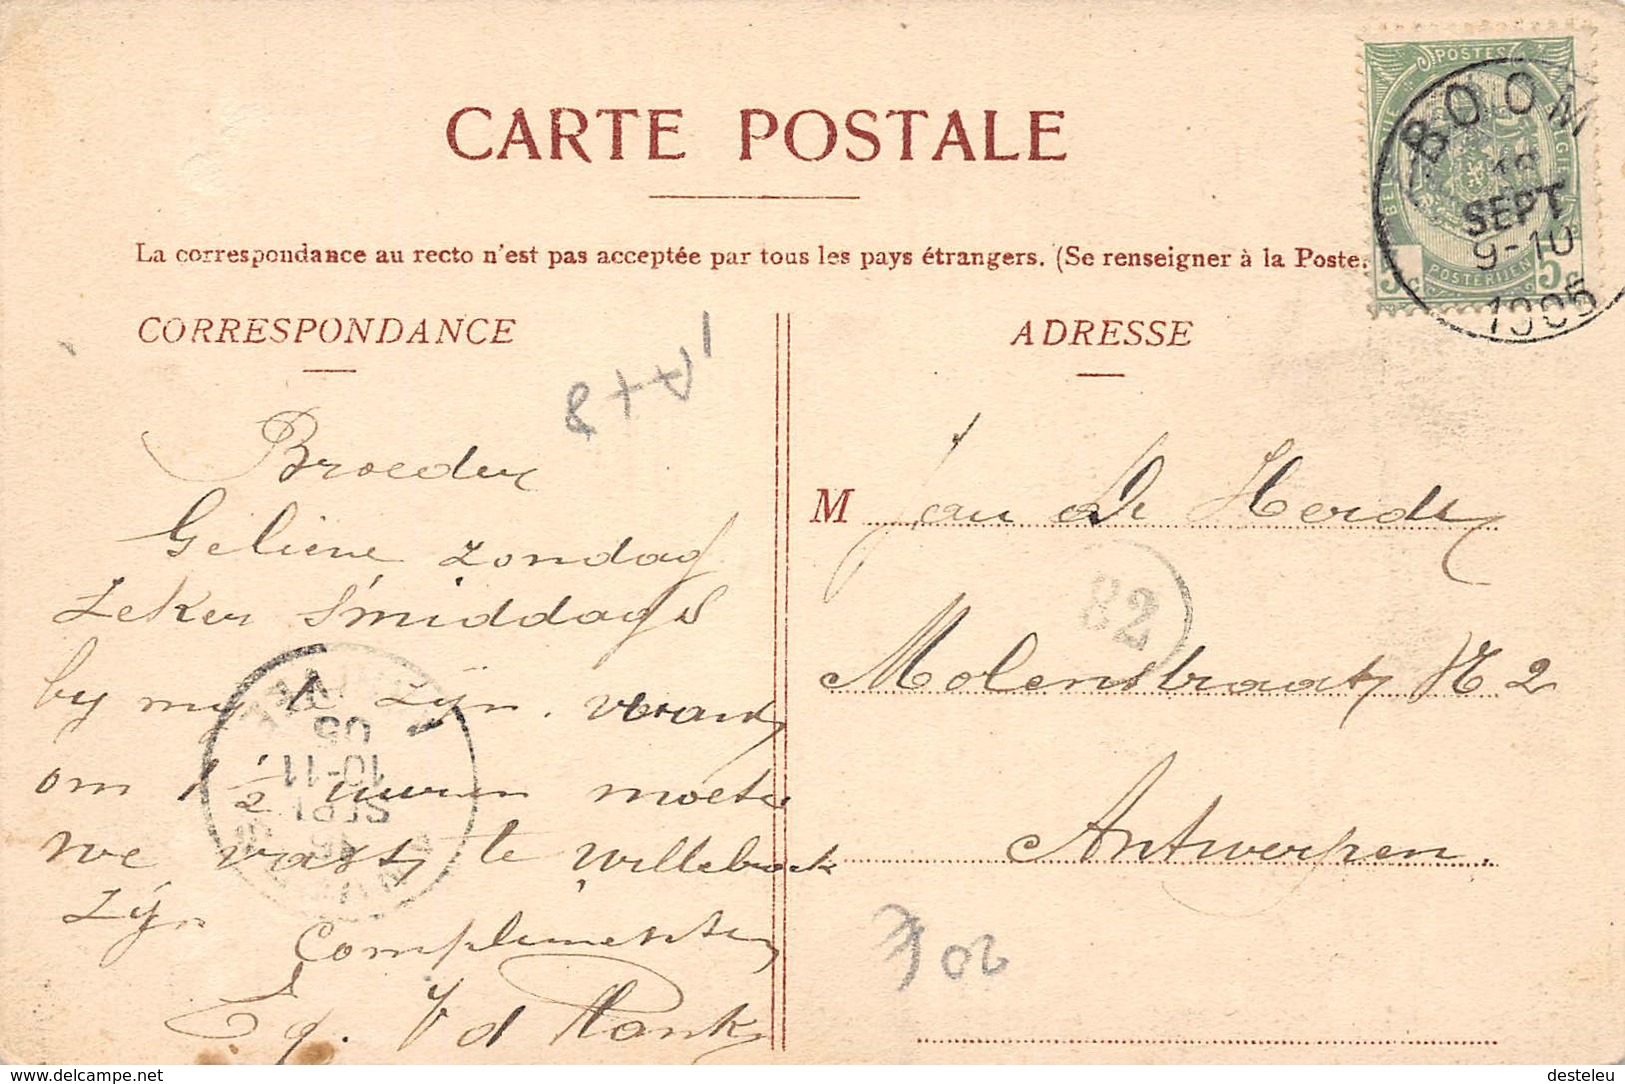 CARTE POSTALE
La correspondance au recto n'est pas acceptée par tous les pays étrangers. (Se renseigner à la Poste.
CORRESPONDANCE
ADRESSE
POSTES
BELGIQUE
BELGIË
POSTERIJEN
5c 5c
BOOM
18
SEPT
9-10
1905
Broeder
Gelieve zondag
zeker s'middags
by my te zÿn. want
om 1 1/2 uuren moeten
we vast te Willebroek
zÿn
Complimenten
Eg. V d Plank
M Jan De Herdt
Molenstraat N 2
Antwerpen.
82
SEPT
10-11
05
delcampe.net
desteleu